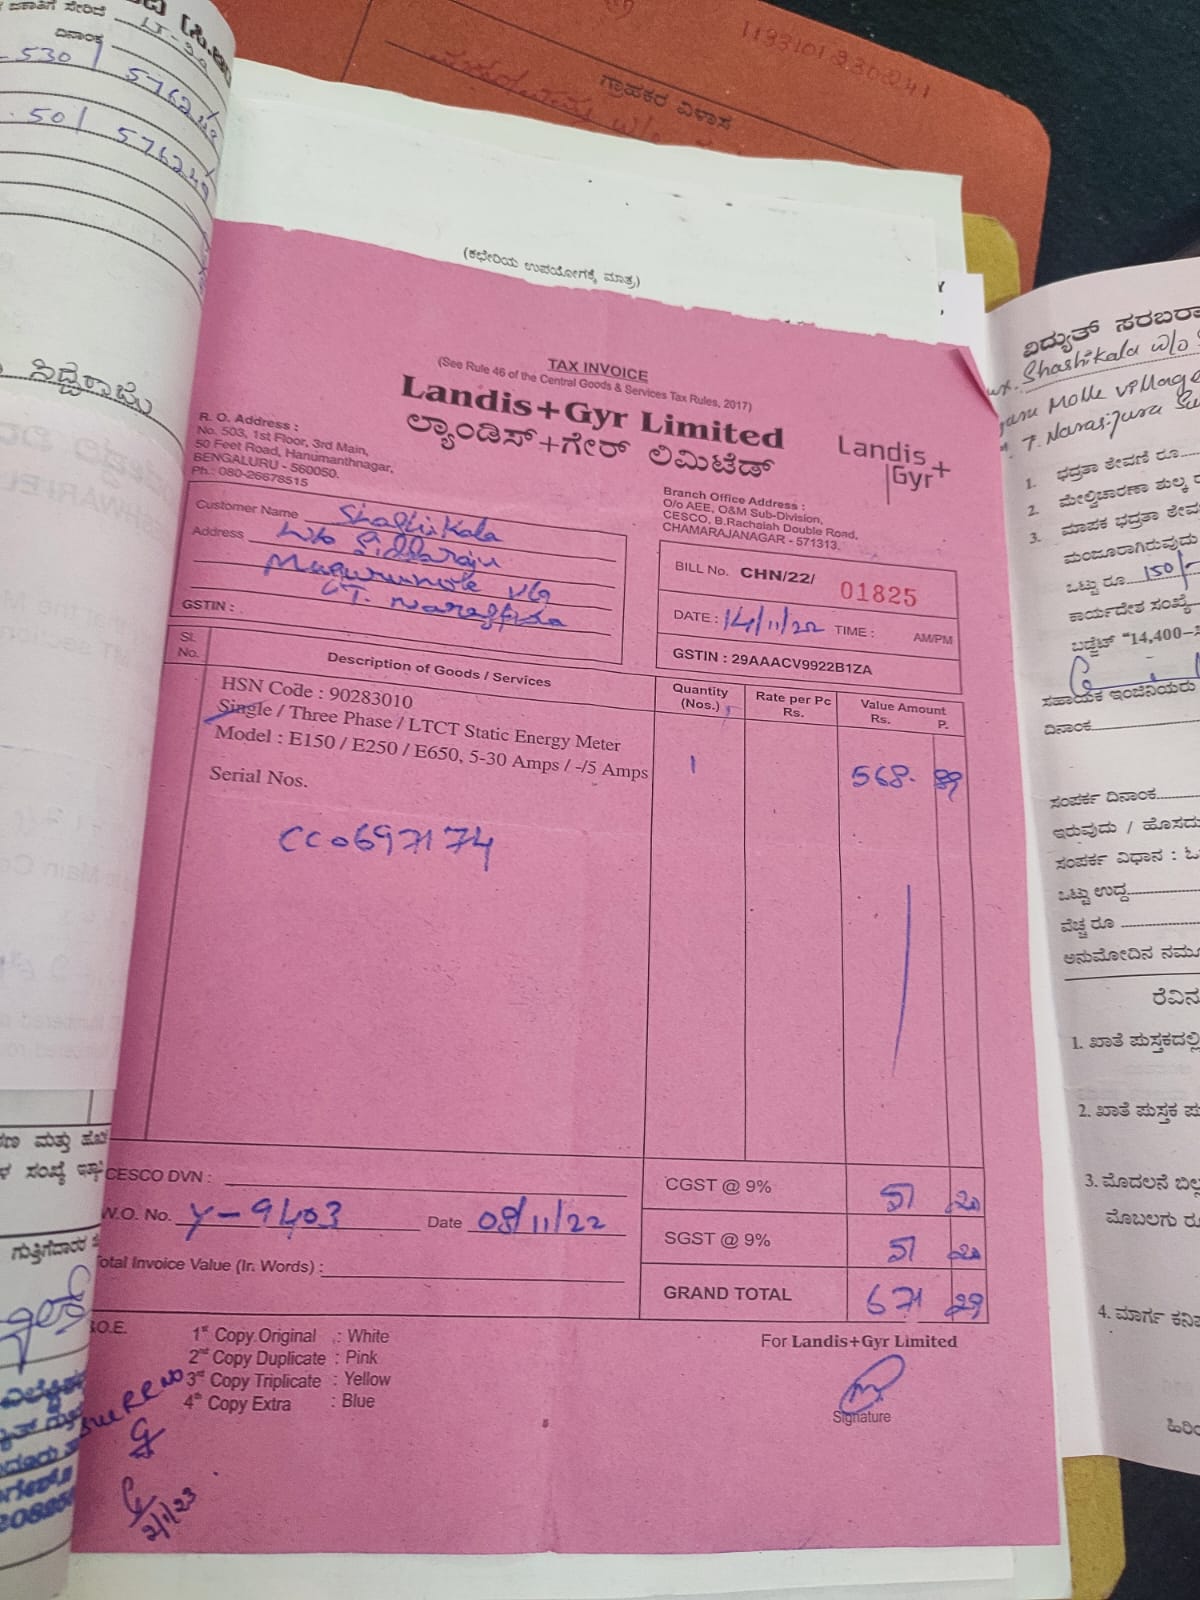 530 / 57624
501 57624
ದಿನಾಂಕ
ಸಿದ್ದರಾಜು
1193101330241
ಗ್ರಾಹಕರ ವಿಳಾಸ
(ಕಛೇರಿಯ ಉಪಯೋಗಕ್ಕೆ ಮಾತ್ರ)
TAX INVOICE
(See Rule 46 of the Central Goods & Services Tax Rules, 2017)
Landis+Gyr Limited
ಲ್ಯಾಂಡಿಸ್+ಗೇರ್ ಲಿಮಿಟೆಡ್
Landis
Gyr+
R. O. Address :
No. 503, 1st Floor, 3rd Main,
50 Feet Road, Hanumanthnagar,
BENGALURU - 560050.
Ph.: 080-26678515
Branch Office Address :
O/o AEE, O&M Sub-Division,
CESCO, B.Rachaiah Double Road,
CHAMARAJANAGAR - 571313.
Customer Name Shashikala
Address W/o Siddaraju
GSTIN :
BILL No. CHN/22/ 01825
DATE : 14/11/22 TIME : AM/PM
GSTIN : 29AAACV9922B1ZA
Sl. No. Description of Goods / Services Quantity (Nos.) Rate per Pc Rs. Value Amount Rs. P.
HSN Code : 90283010
Single / Three Phase / LTCT Static Energy Meter
Model : E150 / E250 / E650, 5-30 Amps / -/5 Amps 1 568. 89
Serial Nos.
CC0697174
CESCO DVN :
W.O. No. Y-9403 Date 08/11/22
Total Invoice Value (Ir. Words) :
CGST @ 9% 51 20
SGST @ 9% 51 20
GRAND TOTAL 671 29
.O.E.
1st Copy Original : White
2nd Copy Duplicate : Pink
3rd Copy Triplicate : Yellow
4th Copy Extra : Blue
For Landis+Gyr Limited
Signature
2/11/23
ವಿದ್ಯುತ್ ಸರಬರಾ
Shashikala W/o
Molle Village
T. Narasipura
1. ಭದ್ರತಾ ಠೇವಣಿ ರೂ
2. ಮೇಲ್ವಿಚಾರಣಾ ಶುಲ್ಕ
3. ಮಾಪಕ ಭದ್ರತಾ ಠೇವ
ಮಂಜೂರಾಗಿರುವುದು
ಒಟ್ಟು ರೂ 150/-
ಕಾರ್ಯದೇಶ ಸಂಖ್ಯೆ
ಬಡ್ಜೆಟ್ "14,400-
ಸಹಾಯಕ ಇಂಜಿನಿಯರು
ದಿನಾಂಕ
ಸಂಪರ್ಕ ದಿನಾಂಕ
ಇರುವುದು / ಹೊಸದು
ಸಂಪರ್ಕ ವಿಧಾನ :
ಒಟ್ಟು ಉದ್ದ
ವೆಚ್ಚ ರೂ
ಅನುಮೋದಿನ ನಮೂ
ರೆವಿನ
1. ಖಾತೆ ಪುಸ್ತಕದಲ್ಲಿ
2. ಖಾತೆ ಪುಸ್ತಕ ಪು
3. ಮೊದಲನೆ ಬಿಲ್ಲ
ಮೊಬಲಗು ರೂ
4. ಮಾರ್ಗ ಕನಿಷ
ಹಿರಿಯ